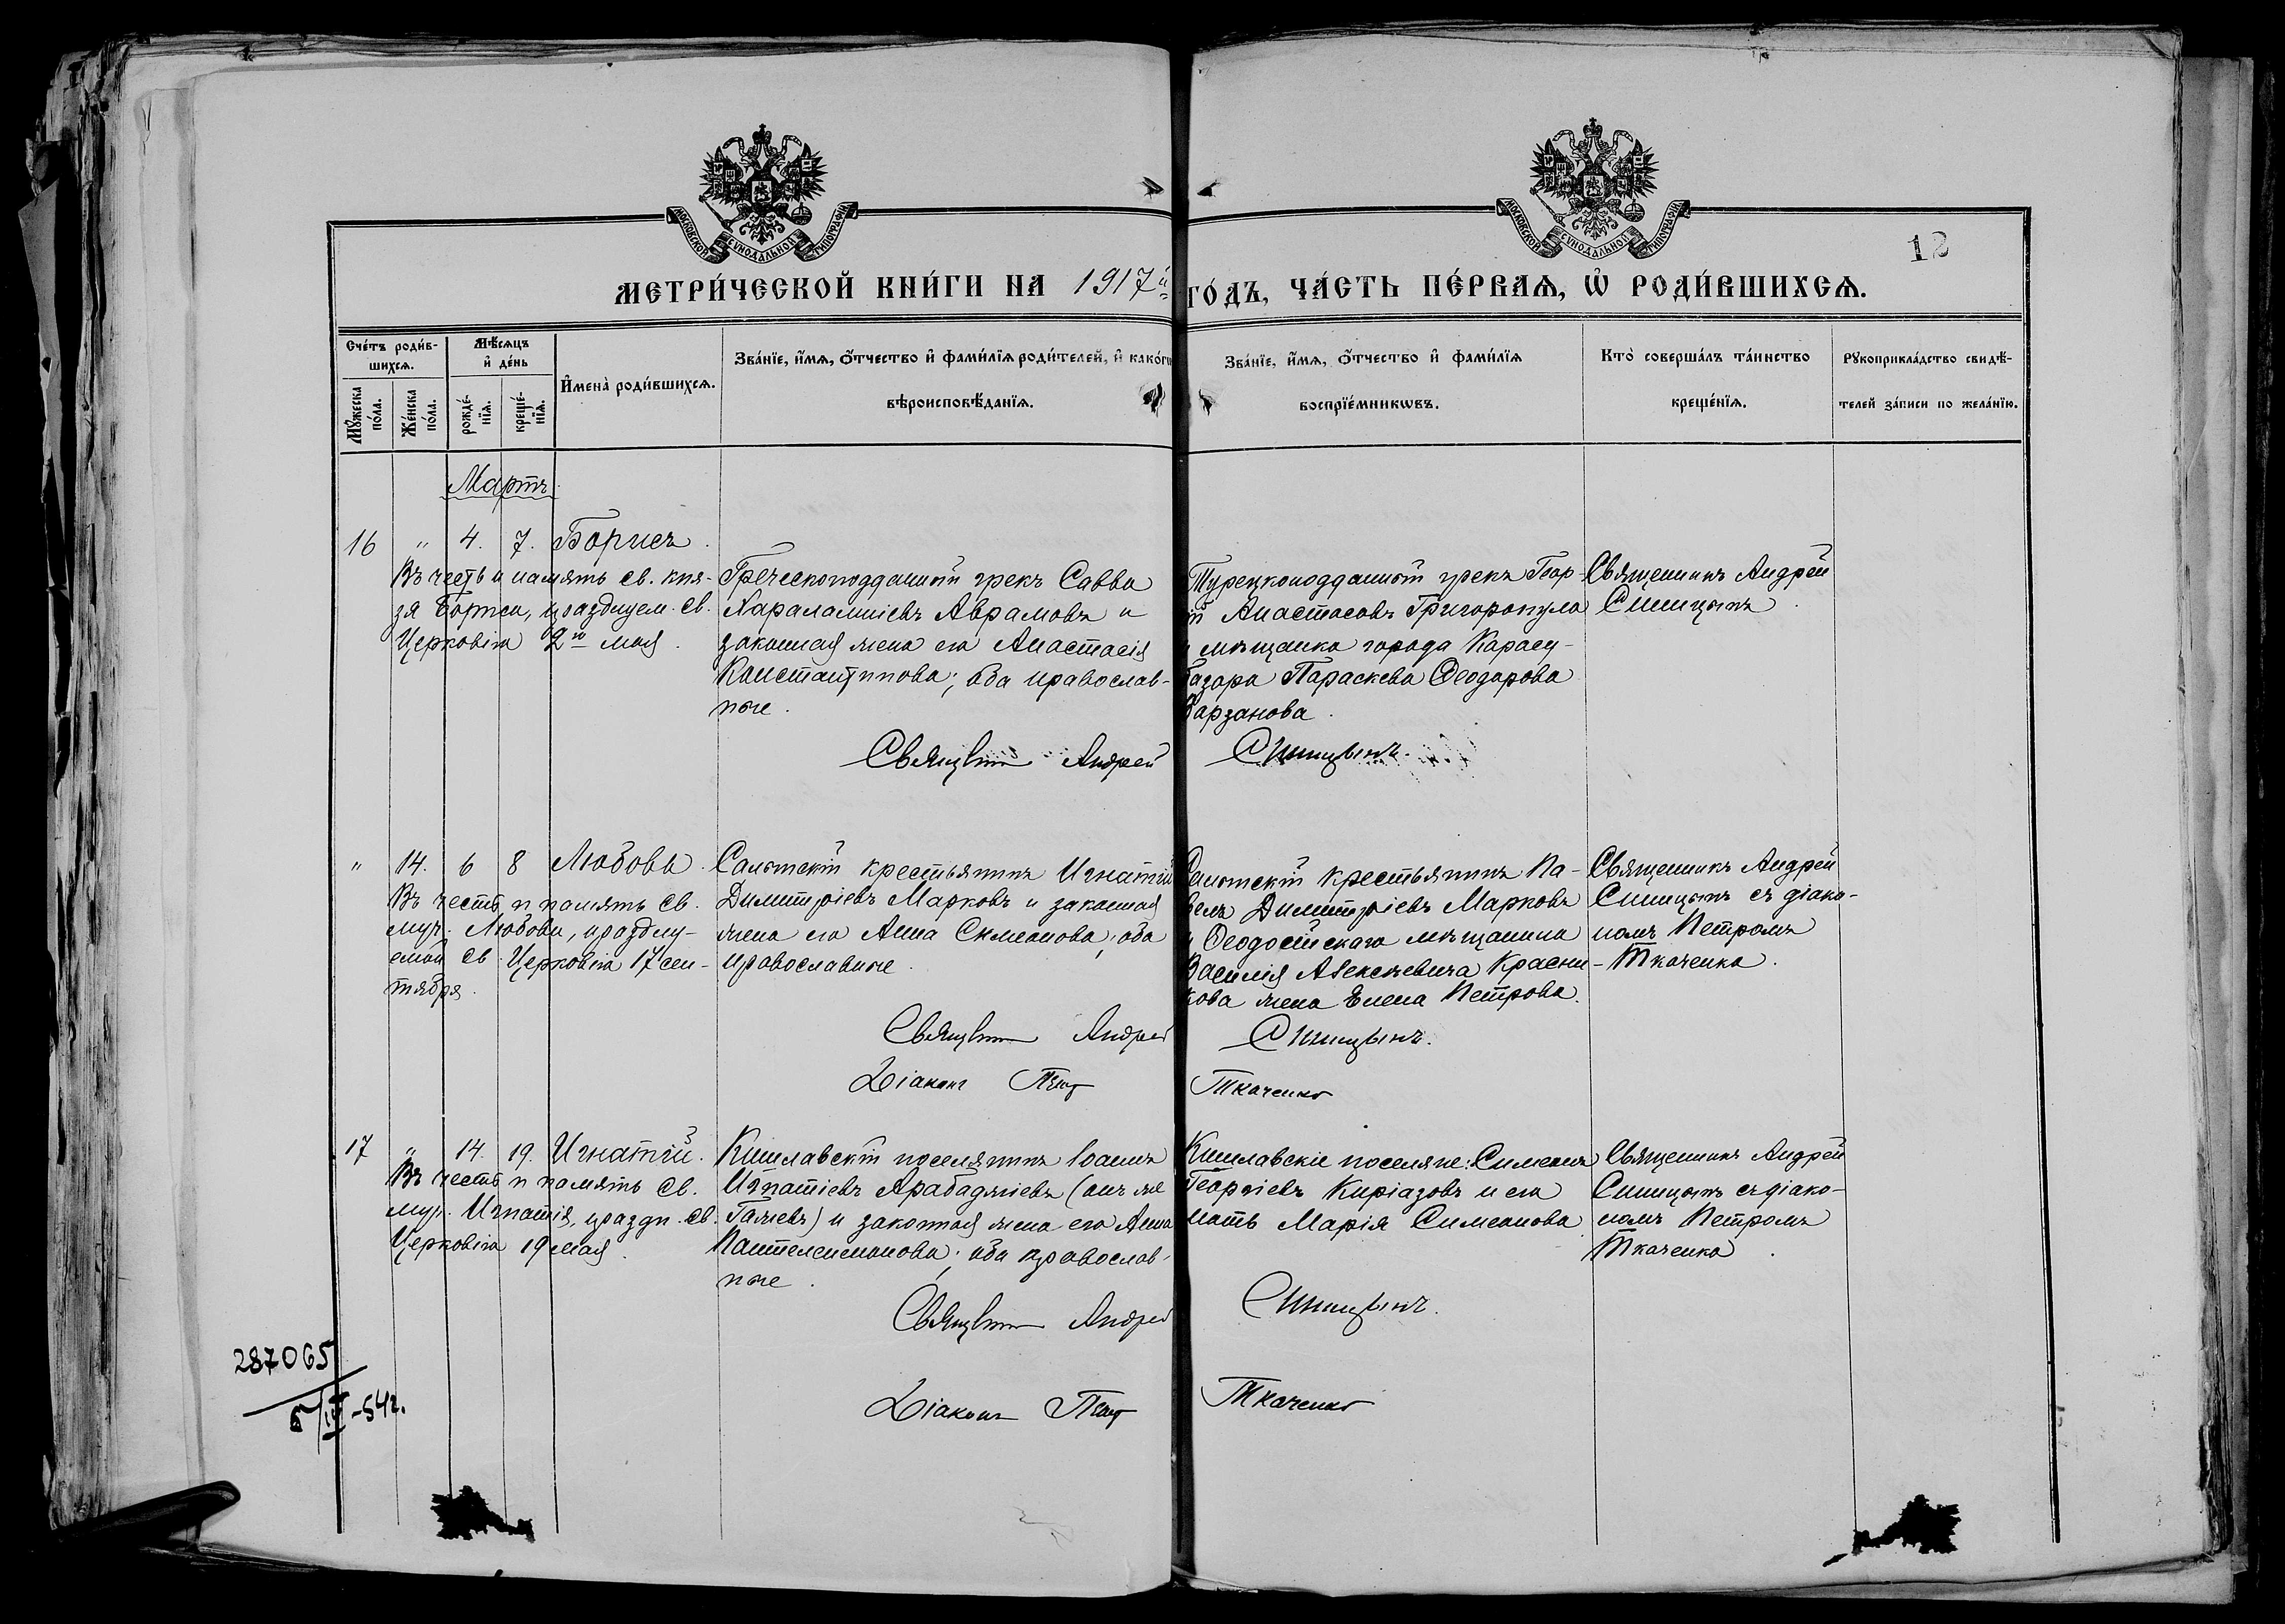 МОСКОВСКОЙ СУНОДАЛЬНОЙ ТИПОГРАФІИ
МОСКОВСКОЙ СУНОДАЛЬНОЙ ТИПОГРАФІИ
12
МЕТРИ́ЧЕСКОЙ КНИ́ГИ НА 1917й ГО́ДЪ, ЧА́СТЬ ПЕ́РВАѦ, Ѡ҆ РОДИ́ВШИХСѦ.
Сче́тъ роди́в-
шихсѧ.
Мѣ́сѧцъ
и҆ де́нь
Мꙋ́жеска
по́ла.
Же́нска
по́ла.
рожде́-
нїѧ.
креще́-
нїѧ.
И҆мена̀ роди́вшихсѧ.
Зва́нїе, и҆́мѧ, ѻ҆́тчество и҆ фами́лїѧ роди́телей, и҆ како́гѡ
вѣроисповѣ́данїѧ.
Зва́нїе, и҆́мѧ, ѻ҆́тчество и҆ фами́лїѧ
воспрїе́мникѡвъ.
Кто̀ соверша́лъ та́инство
креще́нїѧ.
Рꙋкоприкла́дство свидѣ́-
телей за́писи по жела́нїю.
Мартъ
16 " 4. 7. Борисъ.
Въ честь и память св. кня-
зя Бориса, празднуем. св.
Церковію 2го мая.
Греческоподданный грекъ Савва
Харалампіевъ Аврамовъ и
законная жена его Анастасія
Константинова; оба православ-
ные.
Турецкоподданный грекъ Геор-
ій Анастасовъ Григоропуло
и мѣщанка города Карасу-
базара Параскева Ѳеодорова
Варзанова.
Священникъ Андрей
Синицынъ.
Священникъ Андрей Синицынъ.
" 14. 6 8 Любовь.
Въ честь и память св.
муч. Любови, праздну-
емой св. Церковію 17 сен-
тября.
Салынскій крестьянинъ Игнатій
Димитріевъ Марковъ и законная
жена его Анна Симеонова; оба
православные.
Салынскій крестьянинъ Па-
велъ Димитріевъ Марковъ
и Ѳеодосійскаго мѣщанина
Василія Алексѣевича Красни-
кова жена Елена Петрова.
Священникъ Андрей
Синицынъ съ діако-
номъ Петромъ
Ткаченко.
Священникъ Андрей Синицынъ.
Діаконъ Петр Ткаченко
17 " 14. 19. Игнатій.
Въ честь и память св.
муч. Игнатія, праздн. св.
Церковію 19 мая.
Кишлавскій поселянинъ Іоаннъ
Игнатіевъ Арабаджіевъ (онъ же
Галіевъ) и законная жена его Анна
Пантелеимонова; оба православ-
ные.
Кишлавскіе поселяне: Симеонъ
Георгіевъ Киріазовъ и его
мать Марія Симеонова
Священникъ Андрей
Синицынъ съ діако-
номъ Петромъ
Ткаченко.
Священникъ Андрей Синицынъ.
Діаконъ Петр Ткаченко
287065
5/IV-54г.